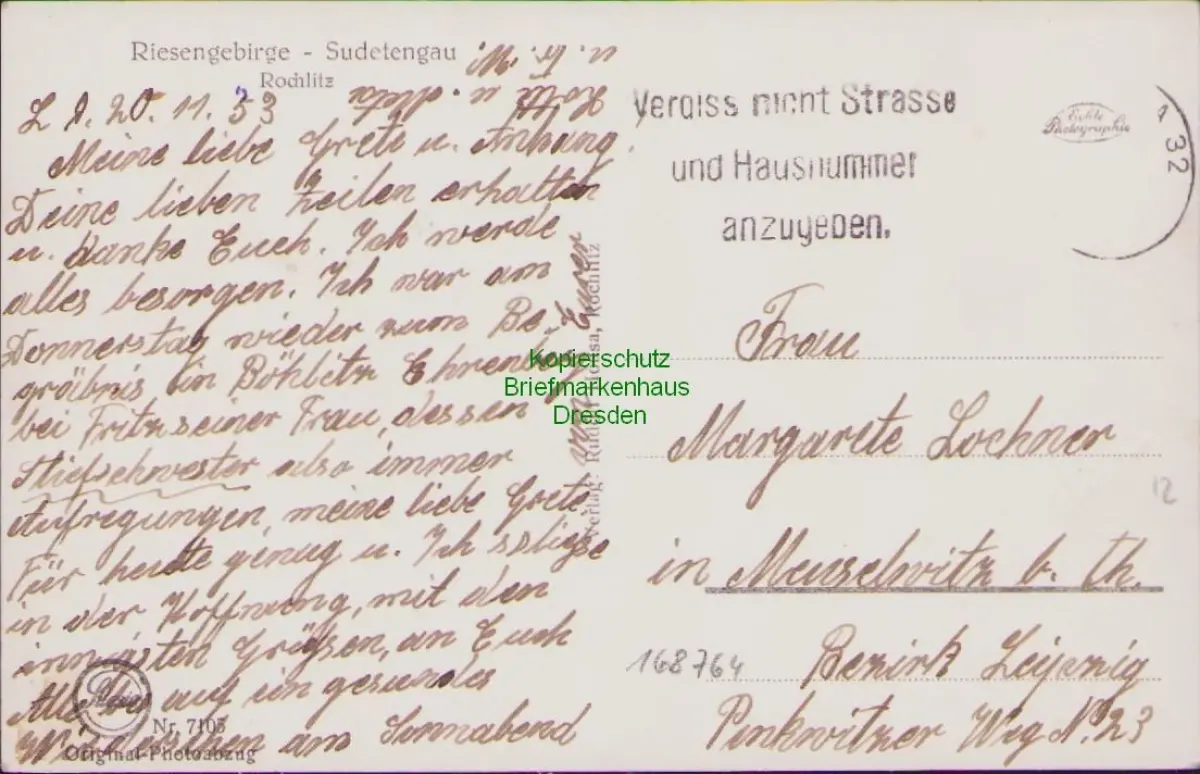 Riesengebirge - Sudetengau
Rochlitz
L d. 20. 11. 53
Meine liebe Grete u. Anhang.
Deine lieben Zeilen erhalten
u. danke Euch. Ich werde
alles besorgen. Ich war am
Donnerstag wieder zum Be-
gräbnis in Böhlitz Ehrenberg
bei Fritz seiner Frau, dessen
Stiefschwester also immer
Aufregungen, meine liebe Grete.
Für heute genug u. Ich
in der Hoffnung, mit den
innigsten Grüßen, an Euch
Alle auf ein gesundes
am Sonnabend
von Eurer
u.
Nr. 7105
Original-Photoabzug
Verlag: Rochlitz
Vergiss nicht Strasse
und Hausnummer
anzugeben.
32
Echte
Photographie
Frau
Margarete Lochner
in Meuselwitz b. Th.
Bezirk Leipzig
Penkwitzer Weg No. 23
168764
12
Kopierschutz
Briefmarkenhaus
Dresden